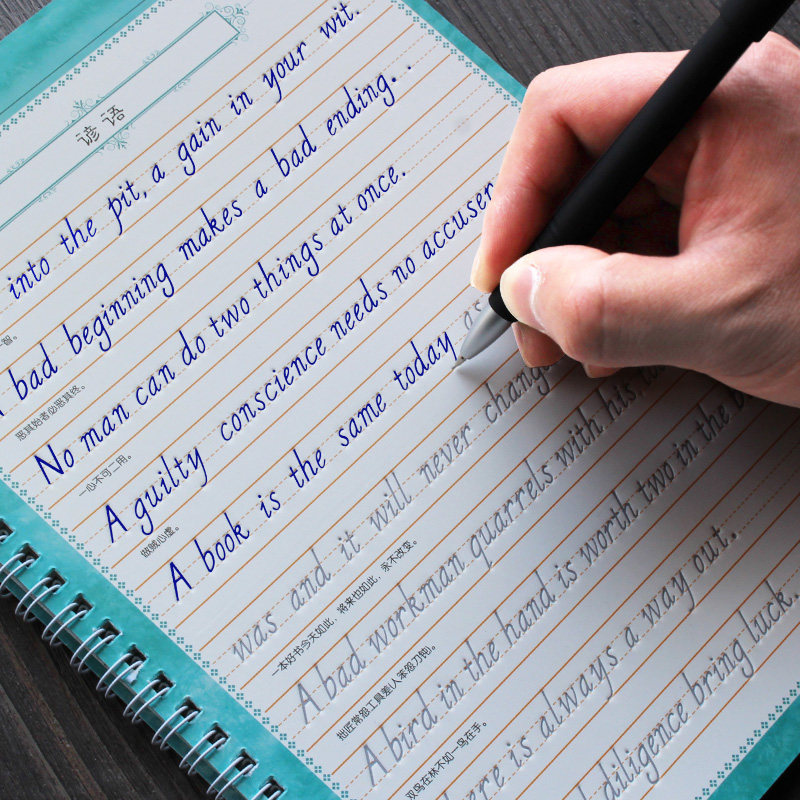 谚语
into the pit, a gain in your wit.
一智。
bad beginning makes a bad ending..
恶其始者必恶其终。
No man can do two things at once.
一心不可二用。
A guilty conscience needs no accuser
做贼心虚。
A book is the same today as
was and it will never change
一本好书今天如此，将来也如此，永不改变。
A bad workman quarrels with his
拙匠常怨工具差(人笨怨刀钝)。
A bird in the hand is worth two in the
双鸟在林不如一鸟在手。
is always a way out.
diligence bring luck.